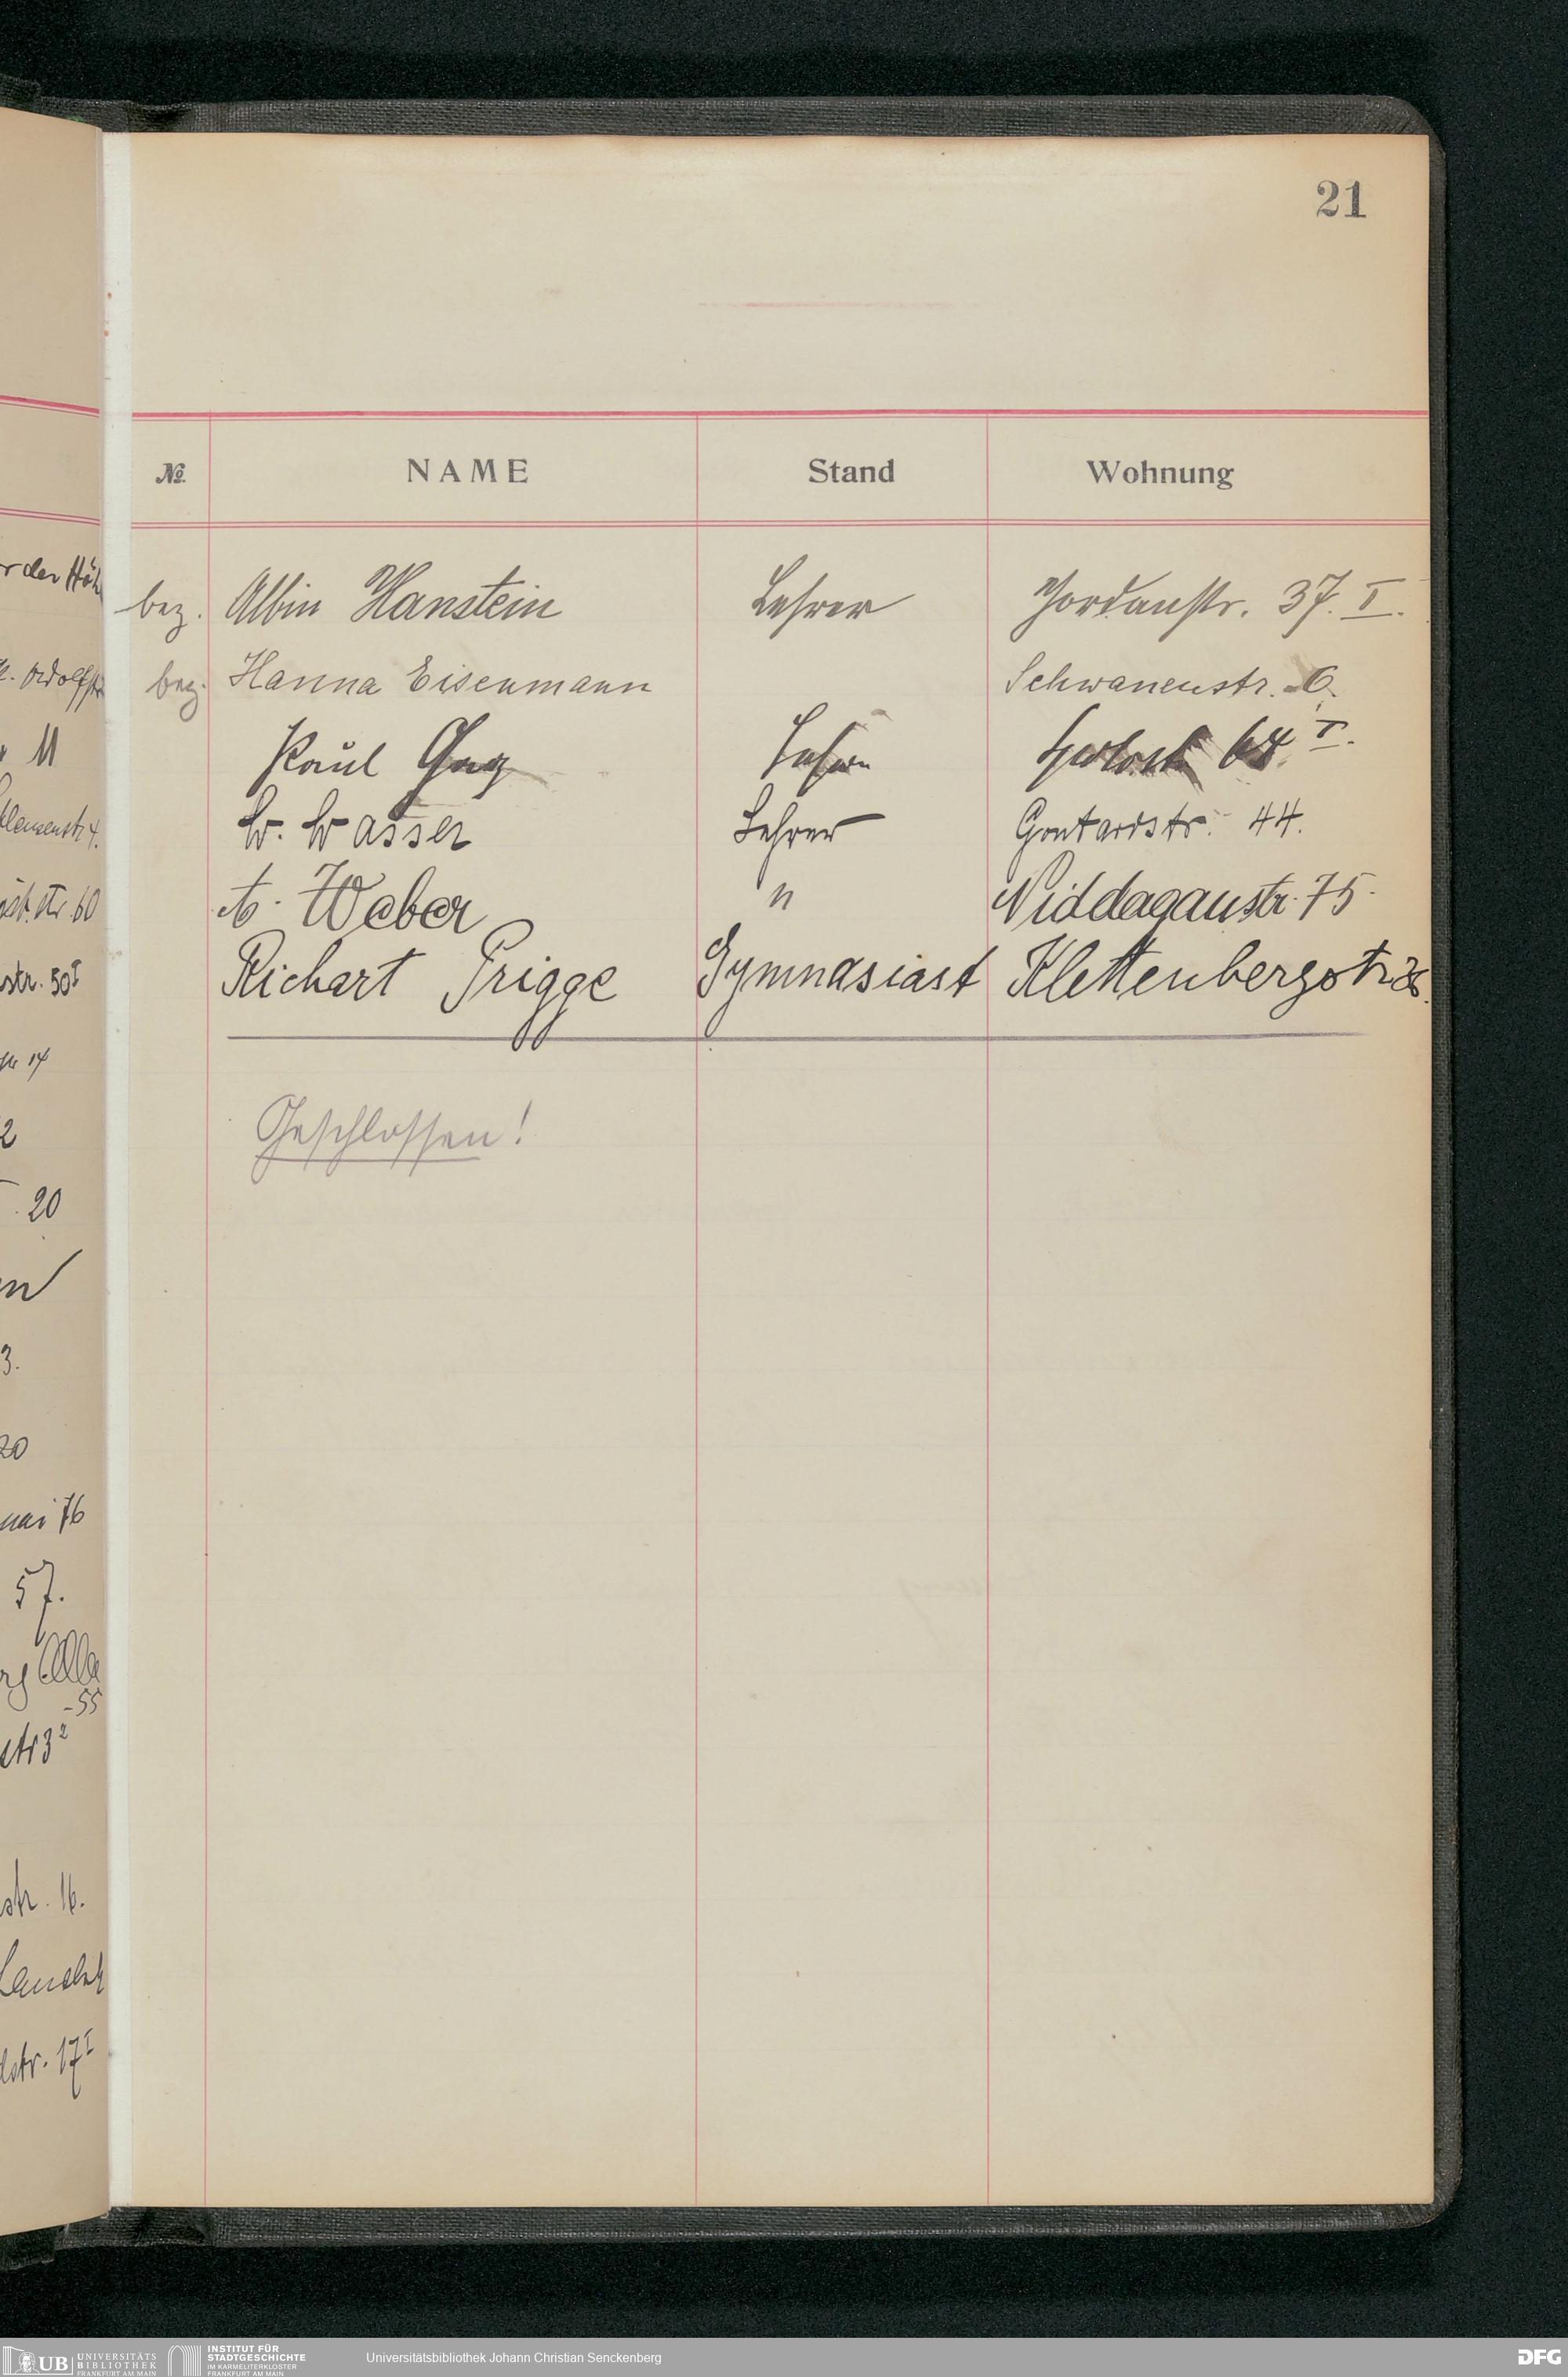 21
№ NAME Stand Wohnung
bez. Albin Hanstein Lehrer Jordanstr. 37. I.
bez. Hanna Eisenmann Schwanenstr. 6.
Paul Lehrer 64 I.
W. Wasser Lehrer Gontardstr. 44.
A. Weber " Niddagaustr. 75
Richart Prigge Gymnasiast Klettenbergstr 28.
Geschlossen!
r der Höh
. Adolfstr
11
60
str. 50 I
str 17
2
20
3.
20
76
57.
55
str 3 2
str. 16.
str. 17 I
UB UNIVERSITÄTS
BIBLIOTHEK
FRANKFURT AM MAIN
INSTITUT FÜR
STADTGESCHICHTE
IM KARMELITERKLOSTER
FRANKFURT AM MAIN
Universitätsbibliothek Johann Christian Senckenberg
DFG